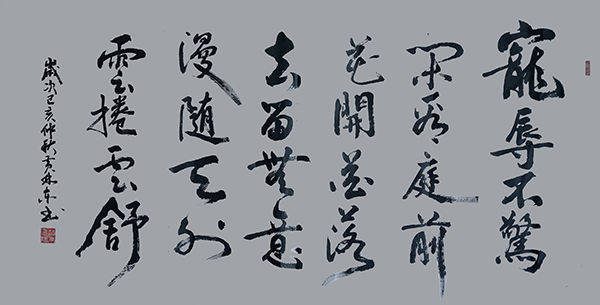 寵辱不驚
閑看庭前
花開花落
去留無意
漫隨天外
雲捲雲舒
歲次己亥仲秋